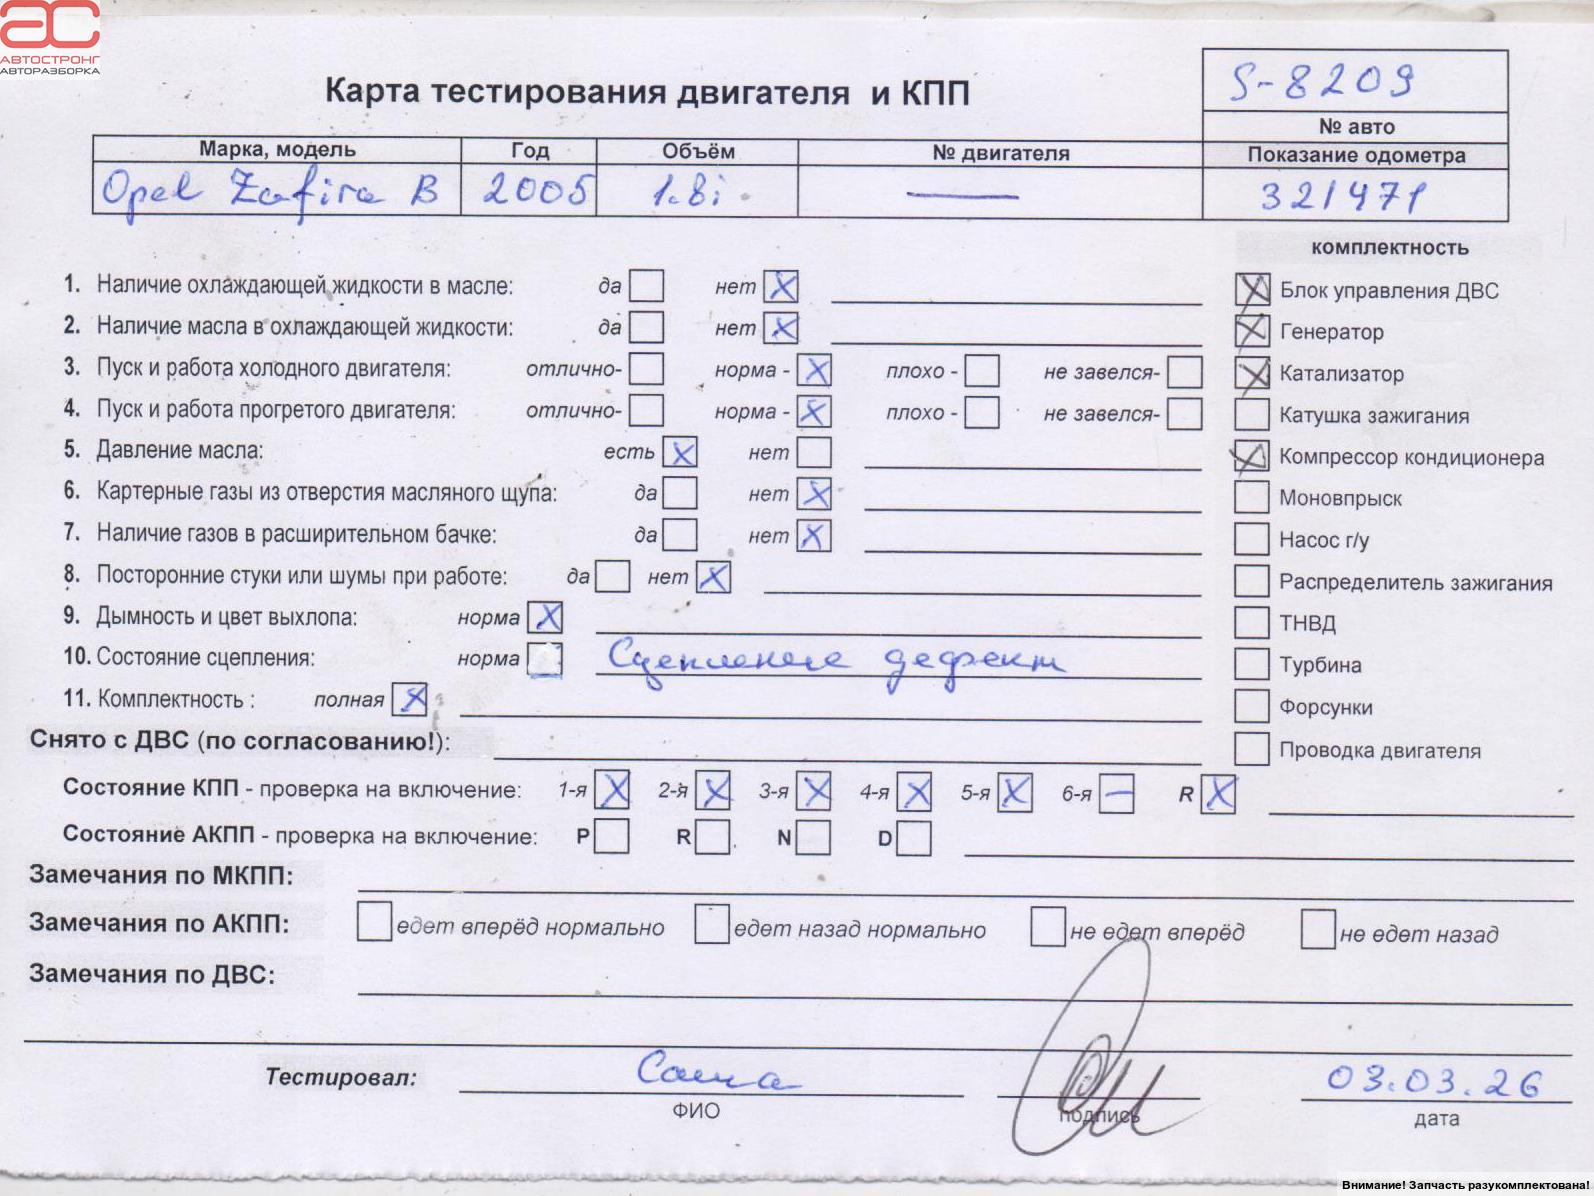 АВТОСТРОНГ
АВТОРАЗБОРКА
Карта тестирования двигателя и КПП
S-8209
№ авто
Марка, модель Год Объём № двигателя Показание одометра
Opel Zafira B 2005 1.8i — 321471
комплектность
1. Наличие охлаждающей жидкости в масле: да нет X
Блок управления ДВС
2. Наличие масла в охлаждающей жидкости: да нет X
Генератор
3. Пуск и работа холодного двигателя: отлично- норма - X плохо - не завелся-
Катализатор
4. Пуск и работа прогретого двигателя: отлично- норма - X плохо - не завелся-
Катушка зажигания
5. Давление масла: есть X нет
Компрессор кондиционера
6. Картерные газы из отверстия масляного щупа: да нет X
Моновпрыск
7. Наличие газов в расширительном бачке: да нет X
Насос г/у
8. Посторонние стуки или шумы при работе: да нет X
Распределитель зажигания
9. Дымность и цвет выхлопа: норма X
ТНВД
10. Состояние сцепления: норма Сцепление дефект
Турбина
11. Комплектность : полная X
Форсунки
Снято с ДВС (по согласованию!):
Проводка двигателя
Состояние КПП - проверка на включение: 1-я X 2-я X 3-я X 4-я X 5-я X 6-я — R X
Состояние АКПП - проверка на включение: P R N D
Замечания по МКПП:
Замечания по АКПП: едет вперёд нормально едет назад нормально не едет вперёд не едет назад
Замечания по ДВС:
Тестировал: Саша 03.03.26
ФИО подпись дата
Внимание! Запчасть разукомплектована!